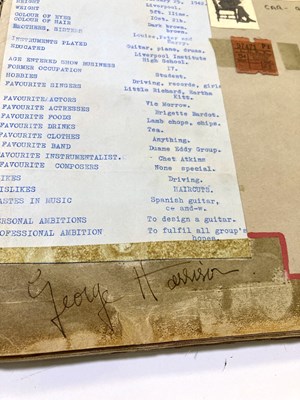 HEIGHT
WEIGHT
COLOUR OF EYES Dark brown.
COLOUR OF HAIR brown.
BROTHERS, SISTERS Louise, Peter and
Harry.
INSTRUMENTS PLAYED Guitar, piano, drums.
EDUCATED Liverpool Institute
High School.
AGE ENTERED SHOW BUSINESS 17.
FORMER OCCUPATION Student.
HOBBIES Driving, records, girls
FAVOURITE SINGERS Little Richard, Eartha
Kitt.
FAVOURITE/ACTORS Vic Morrow.
FAVOURITE ACTRESSES Brigette Bardot.
FAVOURITE FOODS Lamb chops, chips.
FAVOURITE DRINKS Tea.
FAVOURITE CLOTHES Anything.
FAVOURITE BAND Duane Eddy Group.
FAVOURITE INSTRUMENTALIST. Chet Atkins
FAVOURITE COMPOSERS None special.
LIKES Driving.
DISLIKES HAIRCUTS.
TASTES IN MUSIC Spanish guitar,
c+ and-w.
PERSONAL AMBITIONS To design a guitar.
PROFESSIONAL AMBITION To fulfil all group's
hopes.
George Harrison